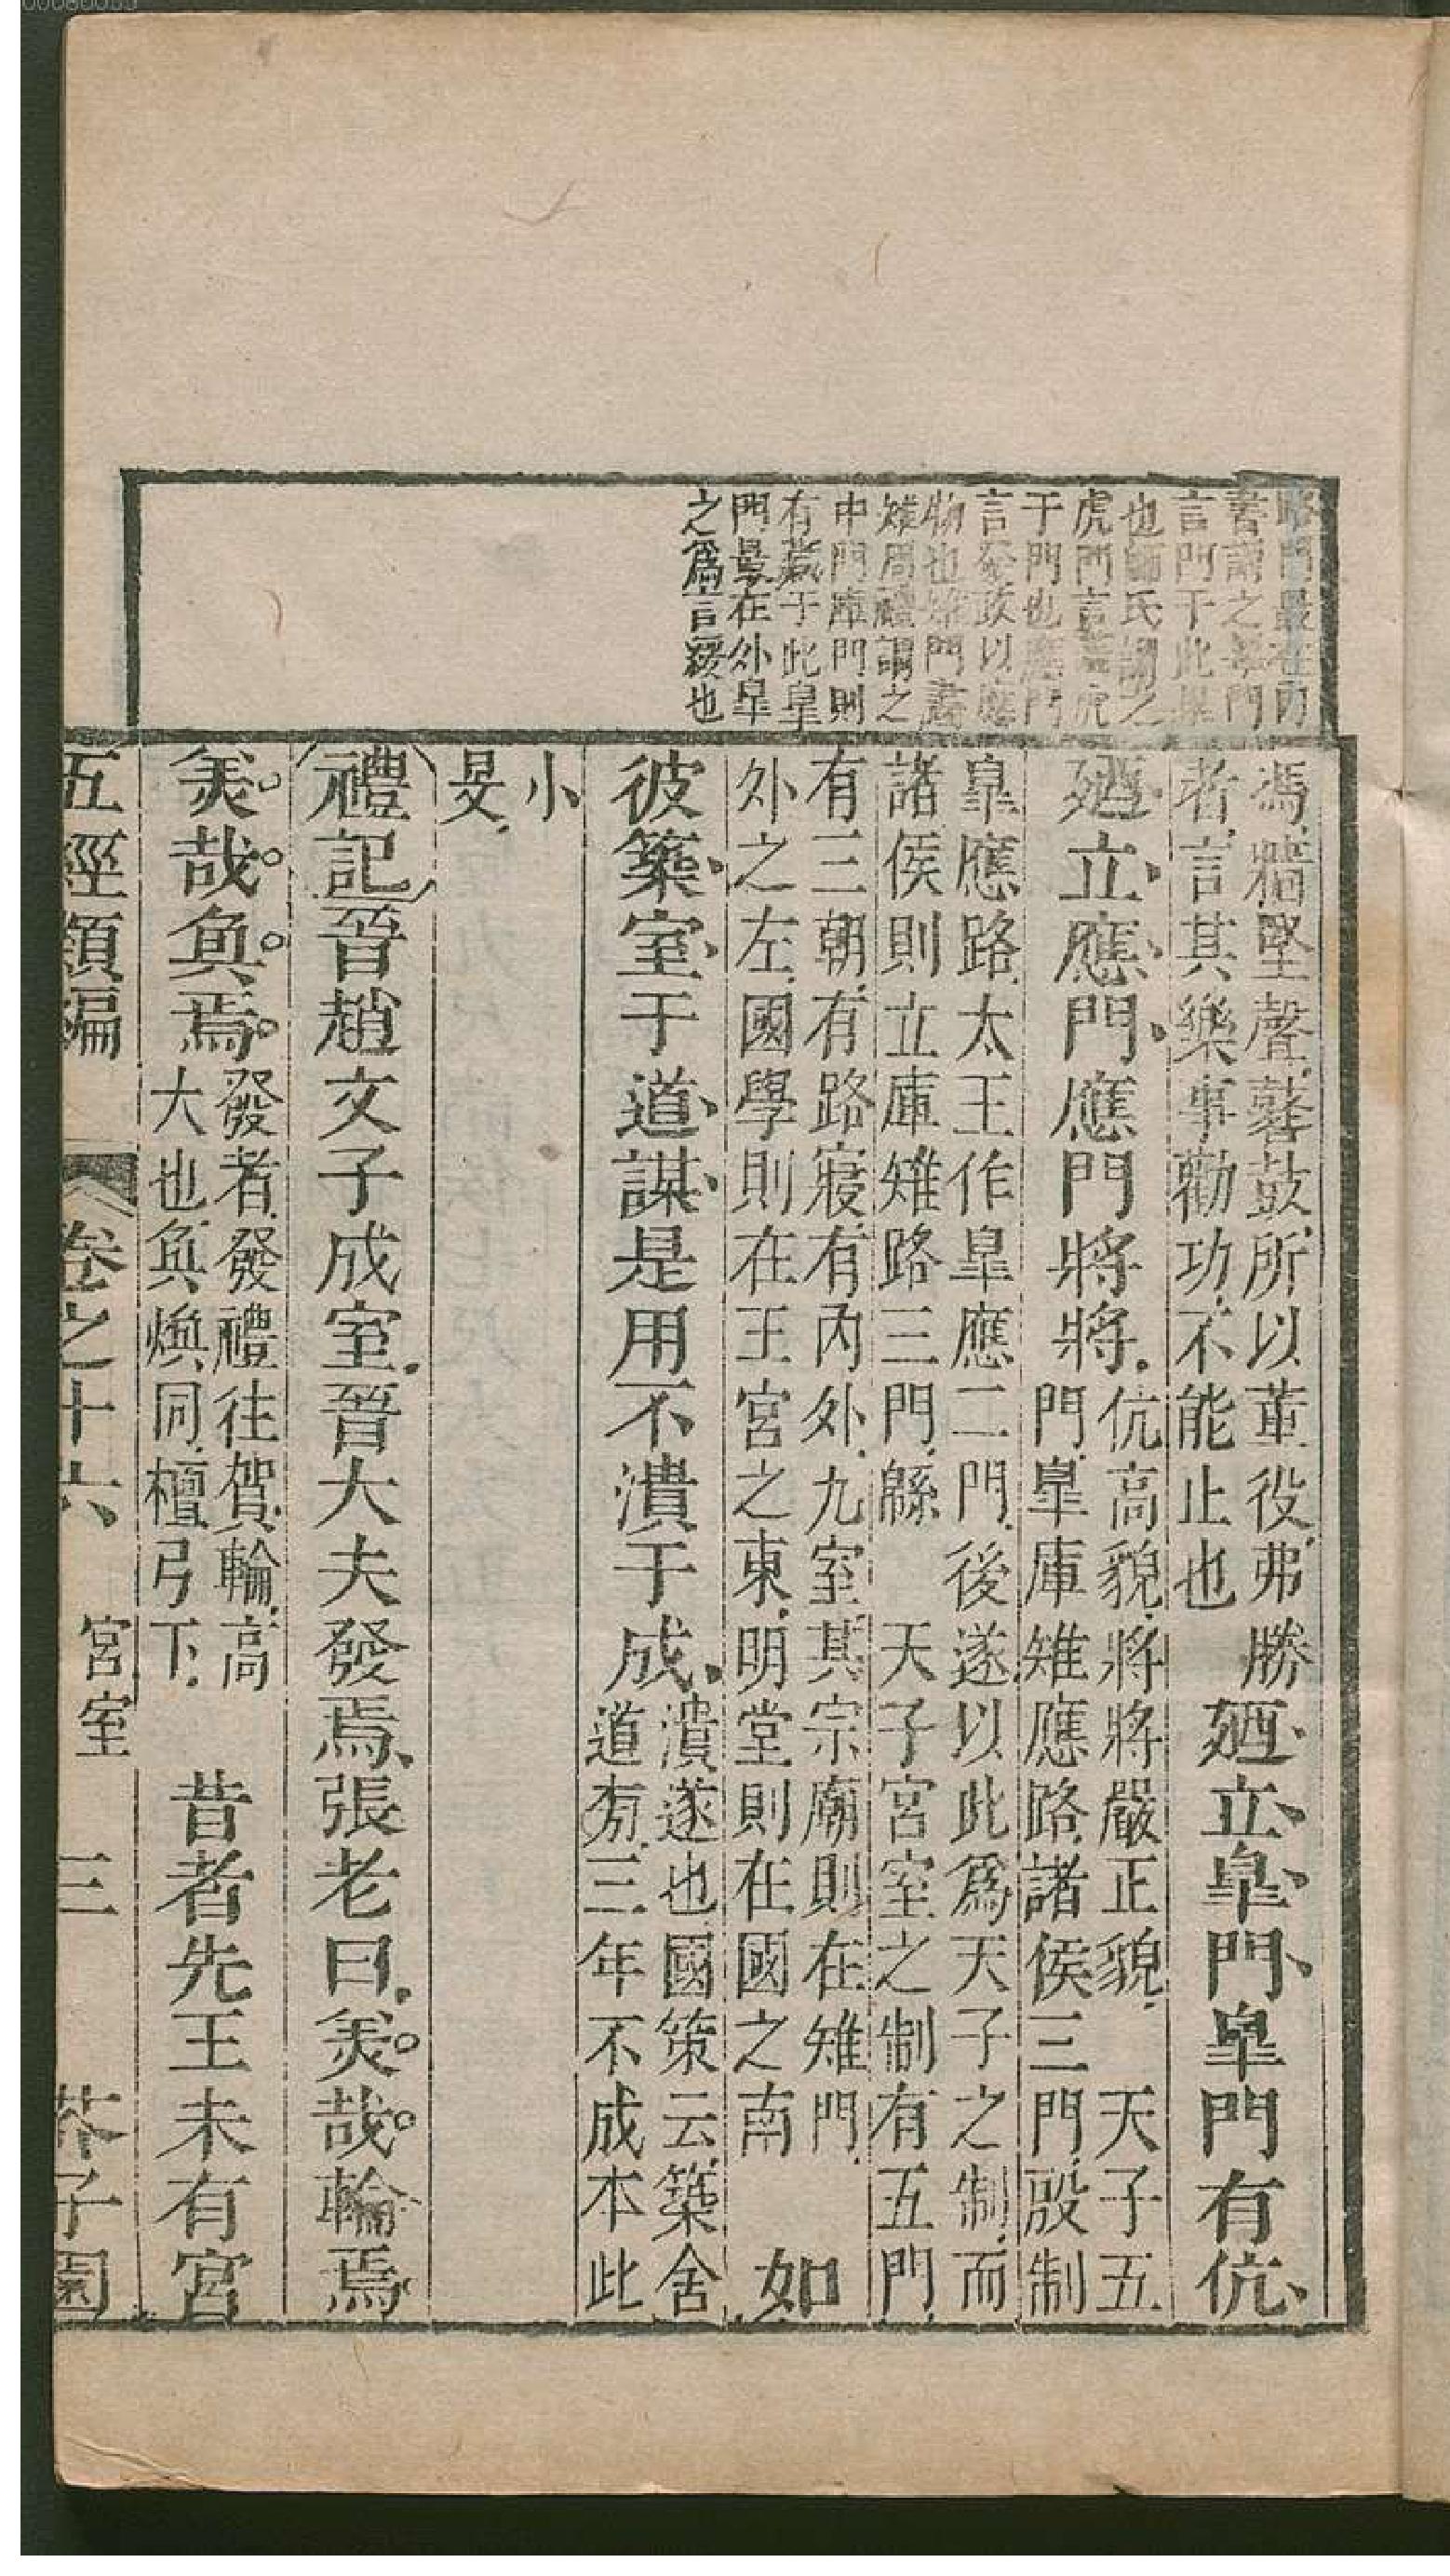 路門最在內
書謂之畢門
言門于此畢
也師氏謂之
虎門言畫虎
于門也應門
言發政以應
物也雉門畫
雉周禮謂之
中門庫門則
有藏于此皐
門最在外皐
之爲言緩也
馮牆堅聲鼛鼓所以董役弗勝
者言其樂事勸功不能止也
廼立皐門皐門有伉
廼立應門應門將將
伉高貌將將嚴正貌 天子五
門皐庫雉應路諸侯三門殷制
皐應路太王作皐應二門後遂以此爲天子之制而
諸侯則立庫雉路三門緜 天子宮室之制有五門
有三朝有路寢有內外九室其宗廟則在雉門
外之左國學則在王宮之東明堂則在國之南
如
彼築室于道謀是用不潰于成
潰遂也國策云築舍
道旁三年不成本此
小
旻
禮記晉趙文子成室晉大夫發焉張老曰美哉輪焉
美哉奐焉
發者發禮往賀輪高
大也奐煥同檀弓下
昔者先王未有宮
五經類編 卷之十六 宮室 三 芥子園